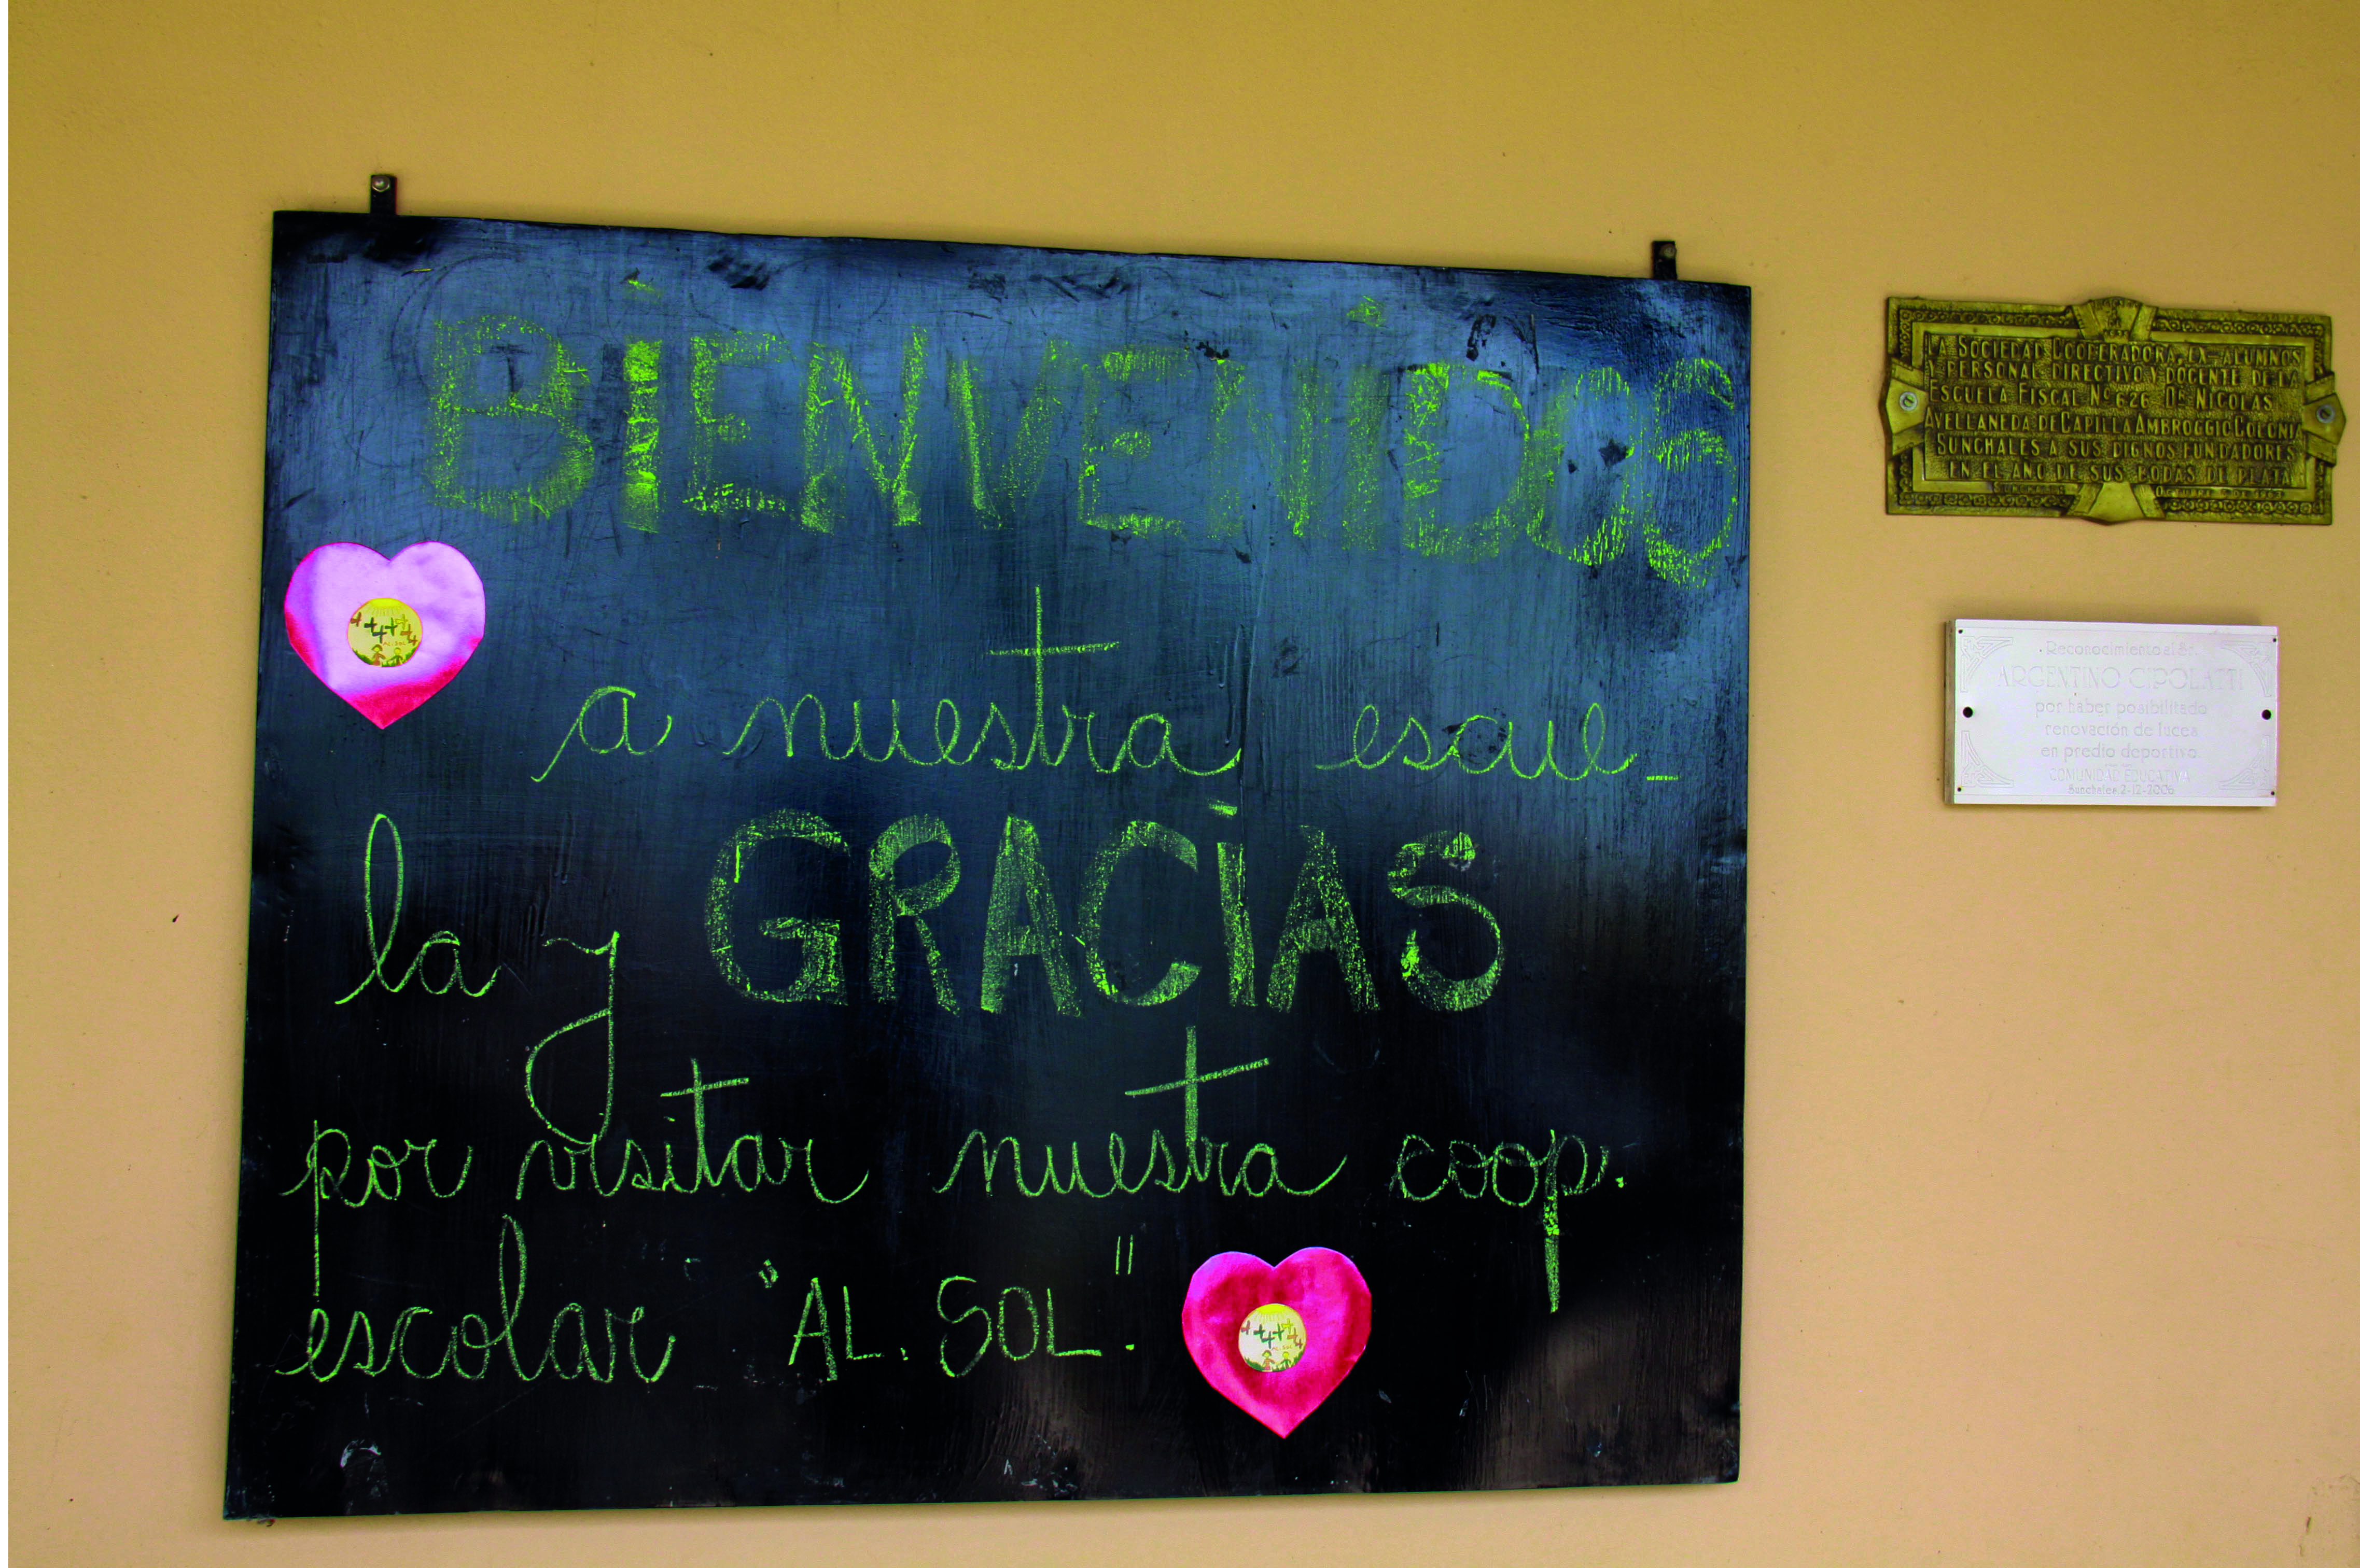 BIENVENIDOS
a nuestra escue_
la y GRACIAS
por visitar nuestra coop.
escolar "AL. SOL."
LA SOCIEDAD COOPERADORA, EX-ALUMNOS
Y PERSONAL DIRECTIVO Y DOCENTE DE LA
ESCUELA FISCAL Nº 626 DR NICOLAS
AVELLANEDA DE CAPILLA AMBROGGIO COLONIA
SUNCHALES A SUS DIGNOS FUNDADORES
EN EL AÑO DE SUS BODAS DE PLATA
Reconocimiento al Sr.
ARGENTINO CIPOLATTI
por haber posibilitado
renovación de luces
en predio deportivo.
COMUNIDAD EDUCATIVA
Sunchales, 2-12-2006